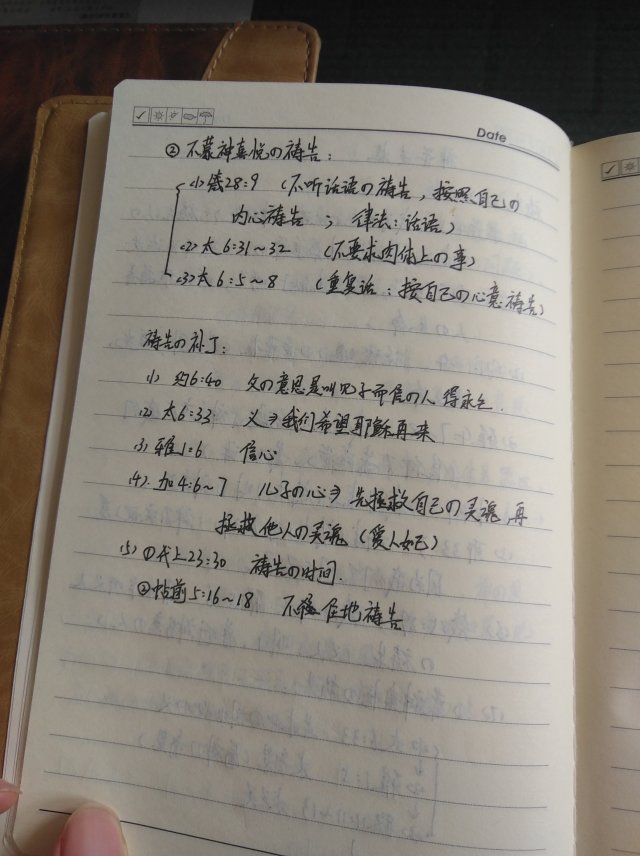 Date
② 不蒙神喜悦の祷告：
(1) 箴28:9 （不听话语の祷告，按照自己の
内心祷告 ； 律法：话语）
(2) 太6:31~32 （不要求肉体上の事）
(3) 太6:5~8 （重复话：按自己の心意祷告）
祷告の补丁：
(1) 约6:40 父の意思是叫见子而信の人 得永生.
(2) 太6:33 义⇒我们希望耶稣再来
(3) 雅1:6 信心
(4). 加4:6~7 儿子の心⇒先拯救自己の灵魂，再
拯救他人の灵魂（爱人如己）
(5) ①代上23:30 祷告の时间.
②帖前5:16~18 不住地祷告